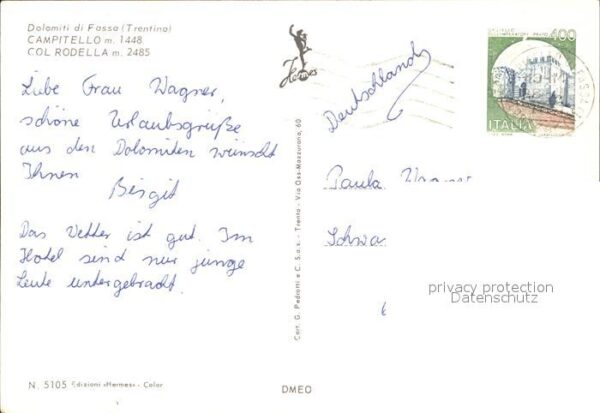 Dolomiti di Fassa (Trentino)
CAMPITELLO m. 1448
COL RODELLA m. 2485
Liebe Frau Wagner,
schöne Urlaubsgrüße
aus den Dolomiten wünscht
Ihnen
Birgit
Das Wetter ist gut. Im
Hotel sind nur junge
Leute untergebracht.
N 5105 Edizioni «Hermes» - Color
Hermes
Cart. G. Pedrotti e C. S.a.s. - Trento - Via Oss-Mazzurana, 60
DMEO
Deutschland
400
ITALIA
Paula Wagner
Schwa
privacy protection
Datenschutz